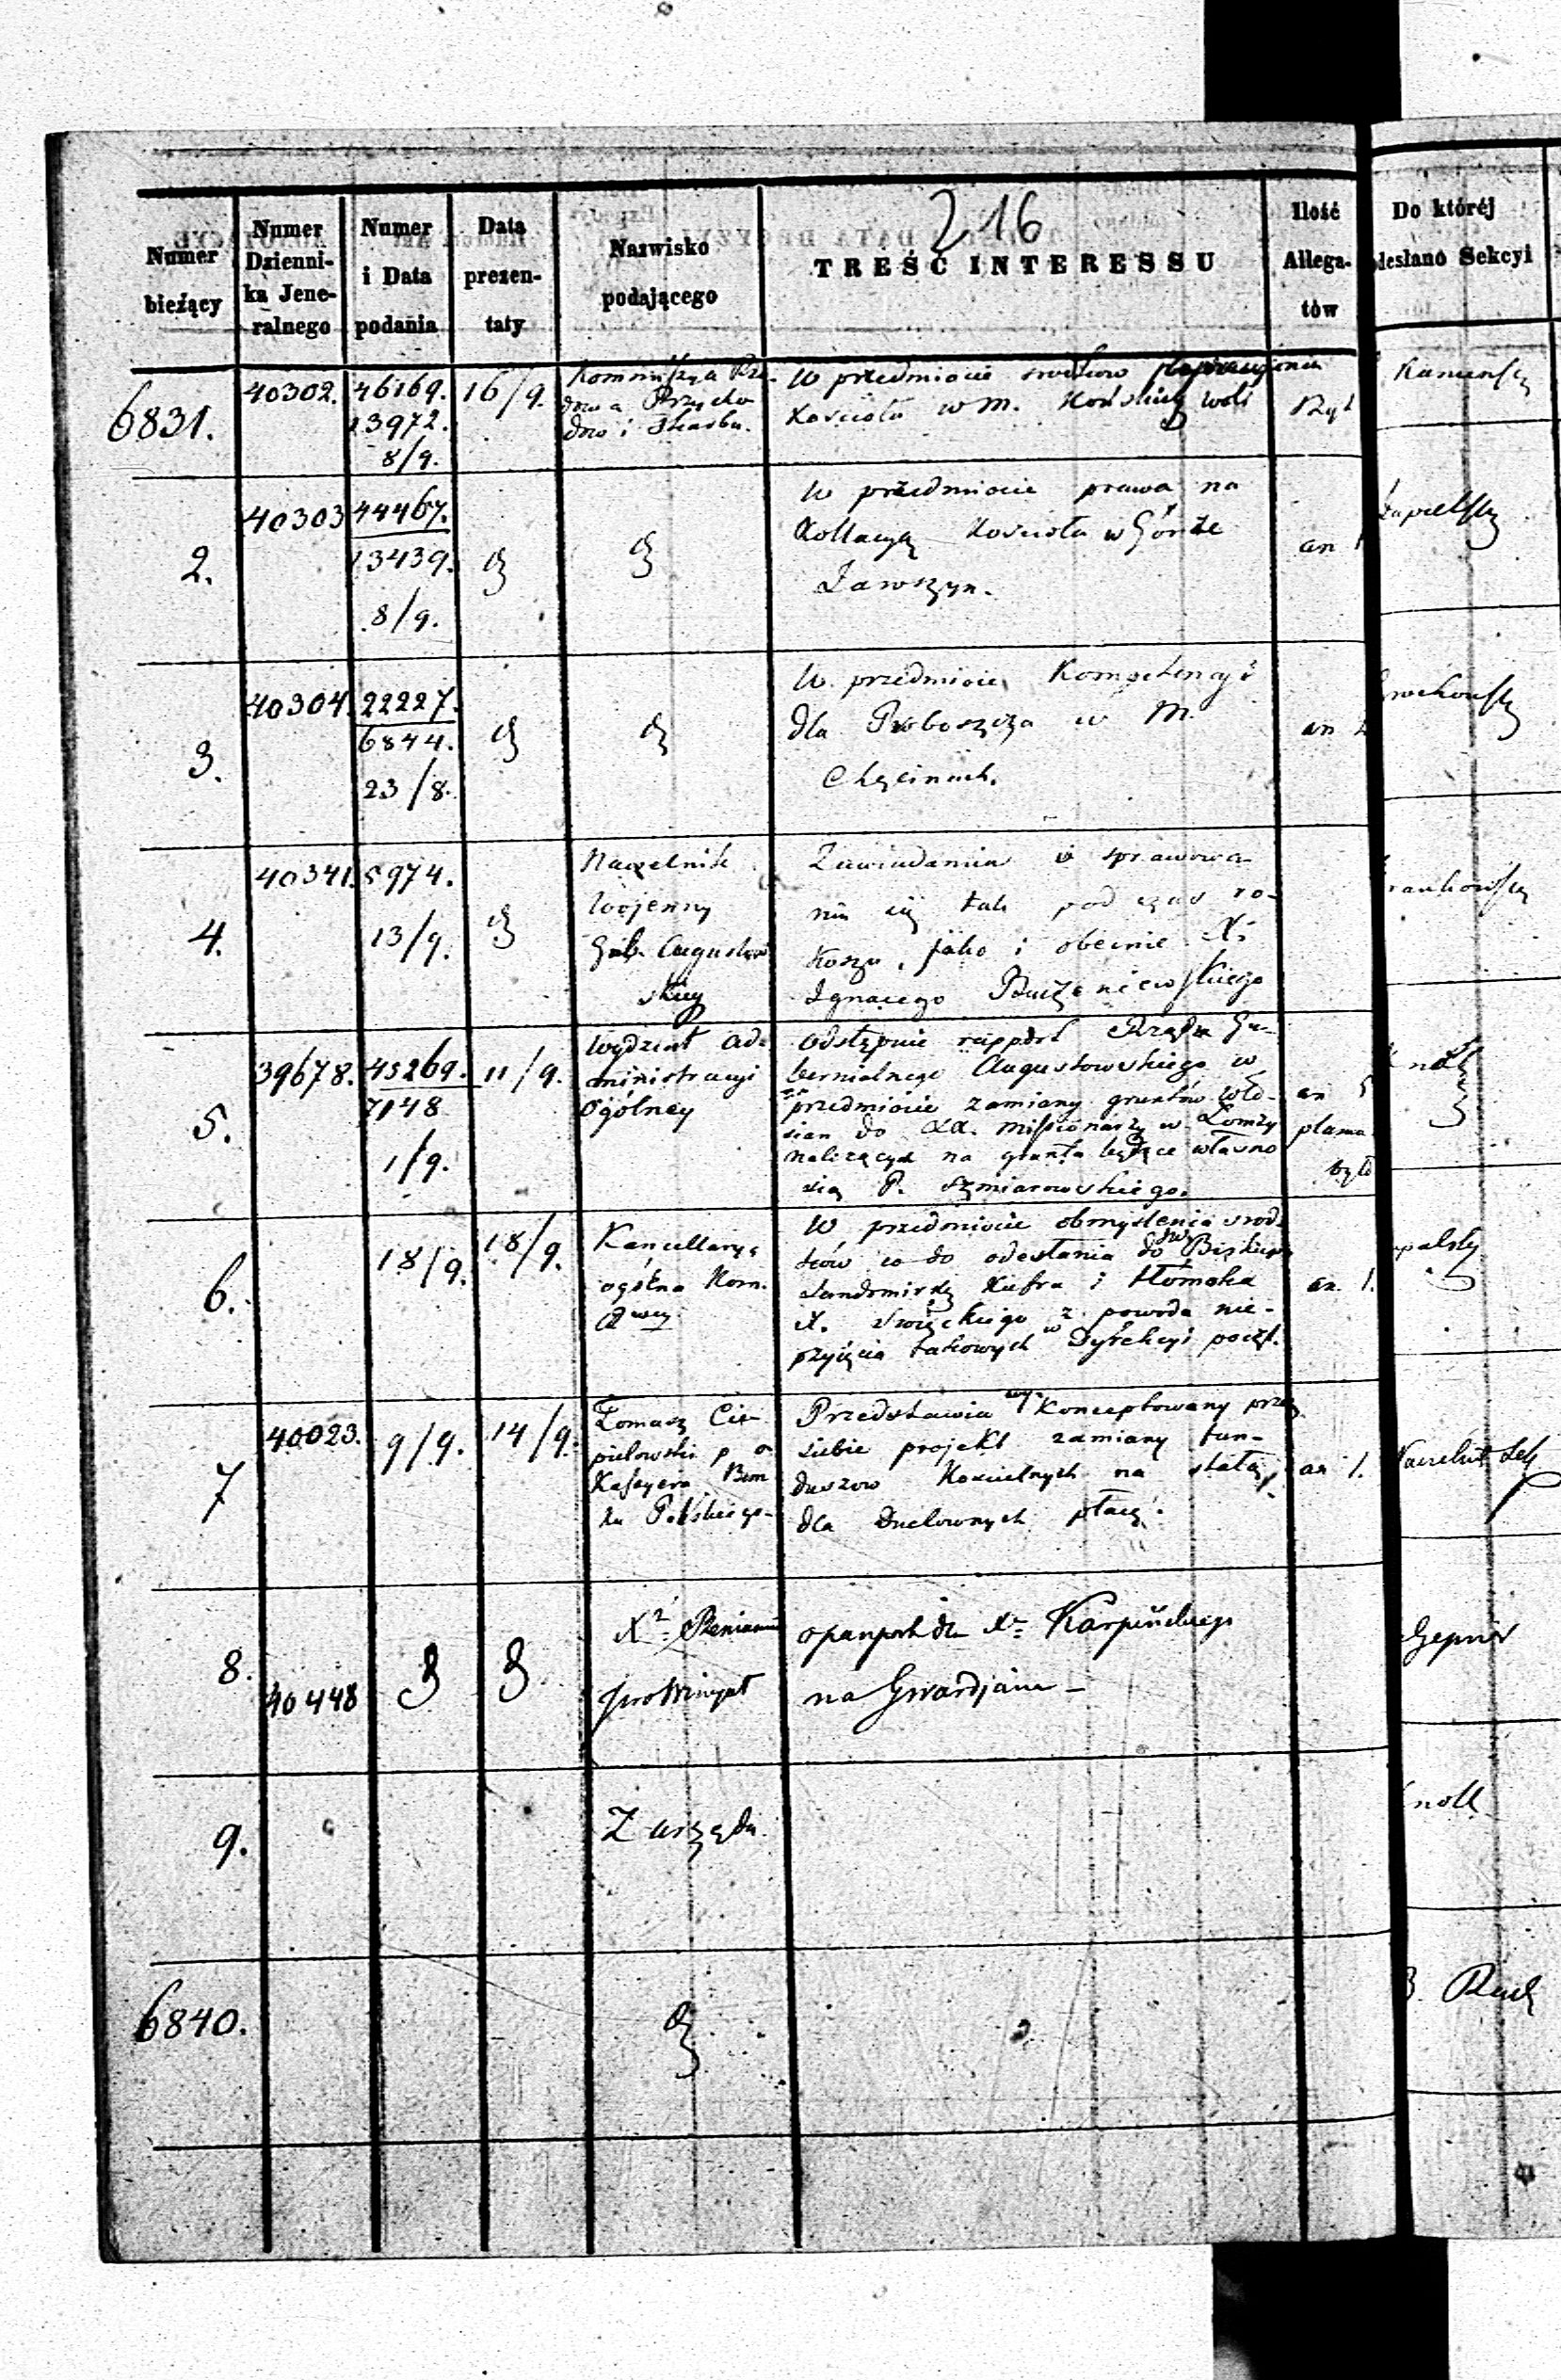 216
Numer bieżący
Numer Dzienni-ka Jene-ralnego
Numer i Data podania
Data prezen-taty
Nazwisko podającego
TREŚĆ INTERESSU
Ilość Allega-tów
Do któréj
desłano Sekcyi
6831.
40302.
46169.
13972.
8/9.
16/9.
Kommissya Rzą-
dowa Przycho
dow i Skarbu.
W przedmiocie
Kościoła w M. Końskiey woli
2.
40303
44467.
13439.
8/9.
W przedmiocie prawa na
Kollacyą Kościoła w Górze
an
3.
40304.
22227.
6844.
23/8.
W przedmiocie Kompetencyi
dla Proboszcza w M.
Chęcinach.
an
4.
40341.
5974.
13/9.
Naczelnik
Wojenny
Gub. Augustow
skiey
Zawiadamia o sprawowa-
niu się tak pod czas ro-
koszu, jako i obecnie X.
Ignacego
5.
39678.
45269.
7148
1/9.
11/9.
Wydział Ad-
ministracyi
Ogólney
Odstępuie rapport Rządu Gu-
bernialnego Augustowskiego w
przedmiocie zamiany gruntów wło-
sian do XX. Missionarzy w Łomży
należących na grunta będące własno
scią P. Szmiarowskiego.
an
6.
18/9.
18/9.
Kancellarya
ogólna Kom.
W przedmiocie obmyslenia srod-
ków co do odesłania do Biskupa
Sandomirsk. Kufra i tłómoka
X. Swięckiego z powodu nie-
przyięcia takowych w Dyrekcyi poczt.
an. 1.
7
40023.
9/9.
14/9.
Tomasz Cie-
pielowski p. o.
Kassyera Ban
ku Polskiego
Przedstawia wy-Konceptowany przez
siebie projekt zamiany fun-
duszow Koscielnych na stałą
dla Duchownych płacę.
an 1.
Naczelnik Sek
8.
40448
Xz. Beniamin
prowincyał
o paszport dla Xa Karpińskiego
na Gwardjana –
9.
Z urzędu
6840.